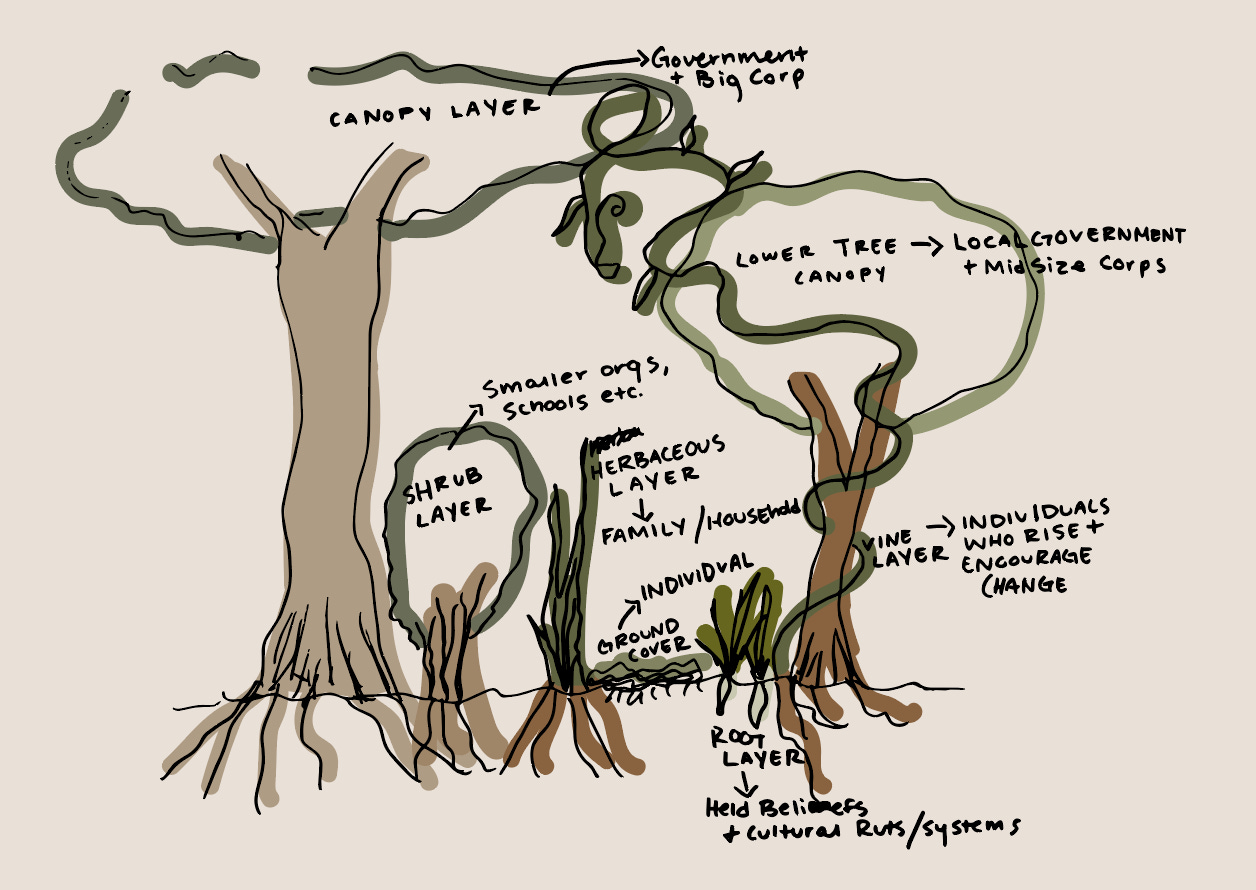 Government
+ Big Corp
CANOPY LAYER
LOWER TREE → LOCAL GOVERNMENT
CANOPY + Midsize Corps
Smaller orgs,
Schools etc.
SHRUB
LAYER
HERBACEOUS
LAYER
FAMILY/Household
VINE → INDIVIDUALS
LAYER WHO RISE +
ENCOURAGE
CHANGE
INDIVIDUAL
GROUND
COVER
ROOT
LAYER
Held Beliefs
+ Cultural Ruts/systems